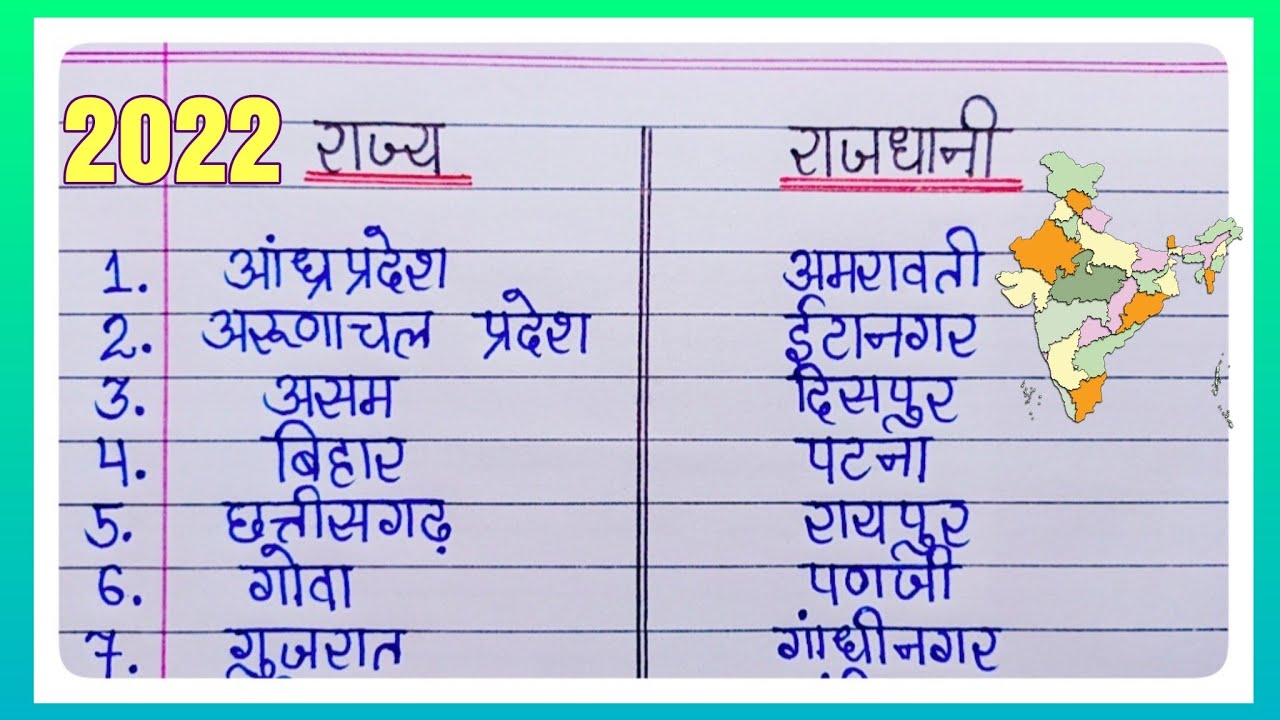 2022
राज्य राजधानी
1. आंध्र प्रदेश अमरावती
2. अरूणाचल प्रदेश ईटानगर
3. असम दिसपुर
4. बिहार पटना
5. छत्तीसगढ़ रायपुर
6. गोवा पणजी
7. गुजरात गांधीनगर